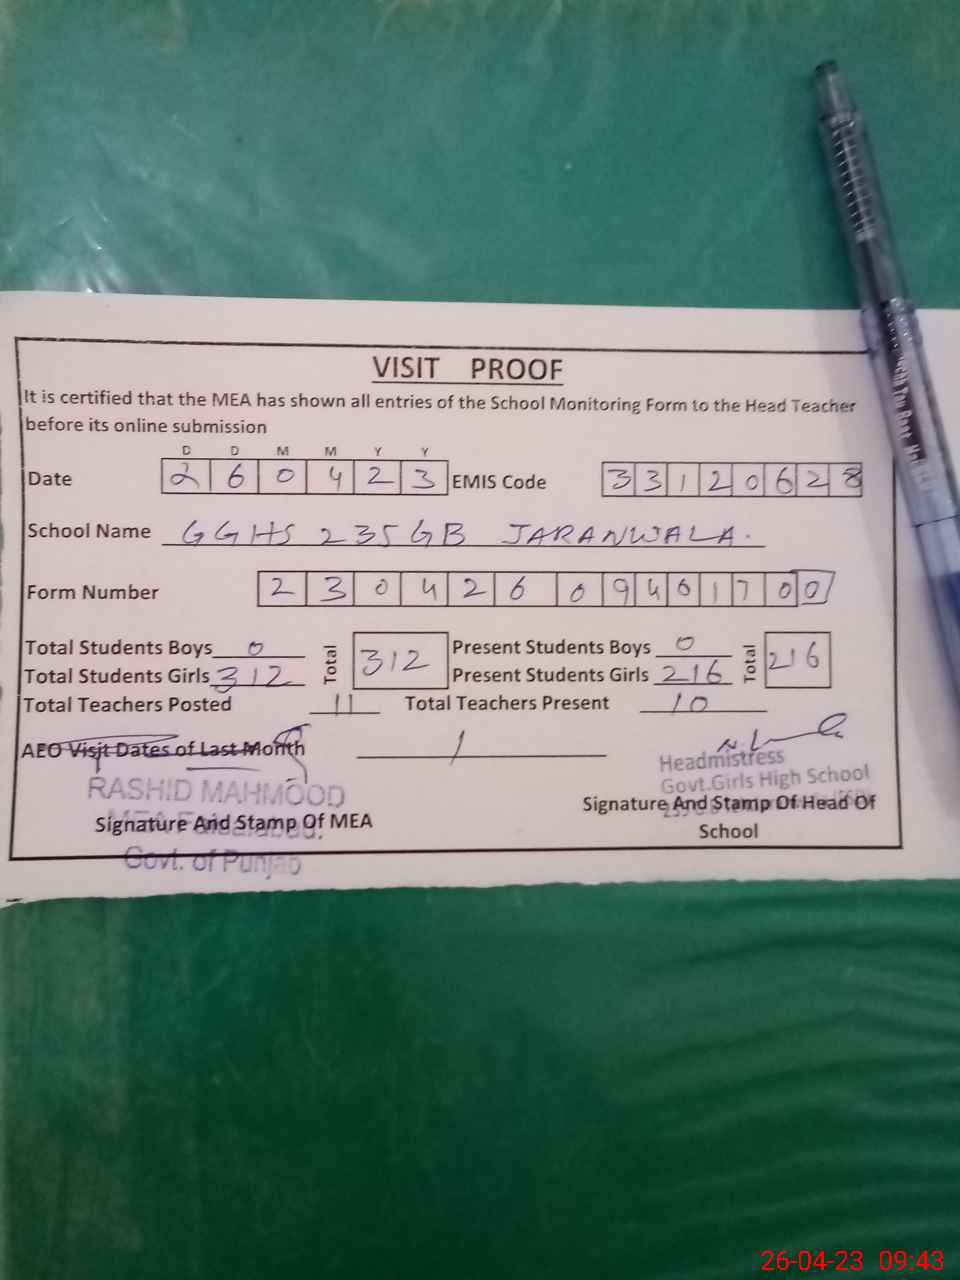 VISIT PROOF
It is certified that the MEA has shown all entries of the School Monitoring Form to the Head Teacher
before its online submission
D D M M Y Y
Date 2 6 0 4 2 3 EMIS Code 3 3 1 2 0 6 2 8
School Name GGHS 235 GB JARANWALA.
Form Number 2 3 0 4 2 6 0 9 4 0 1 7 0 0
Total Students Boys 0 Total 312 Present Students Boys 0 Total 216
Total Students Girls 312 Present Students Girls 216
Total Teachers Posted 11 Total Teachers Present 10
AEO Visit Dates of Last Month /
Headmistress
Govt.Girls High School
RASHID MAHMOOD
Signature And Stamp Of MEA
Signature And Stamp Of Head Of
School
Govt. of Punjab
26-04-23 09:43